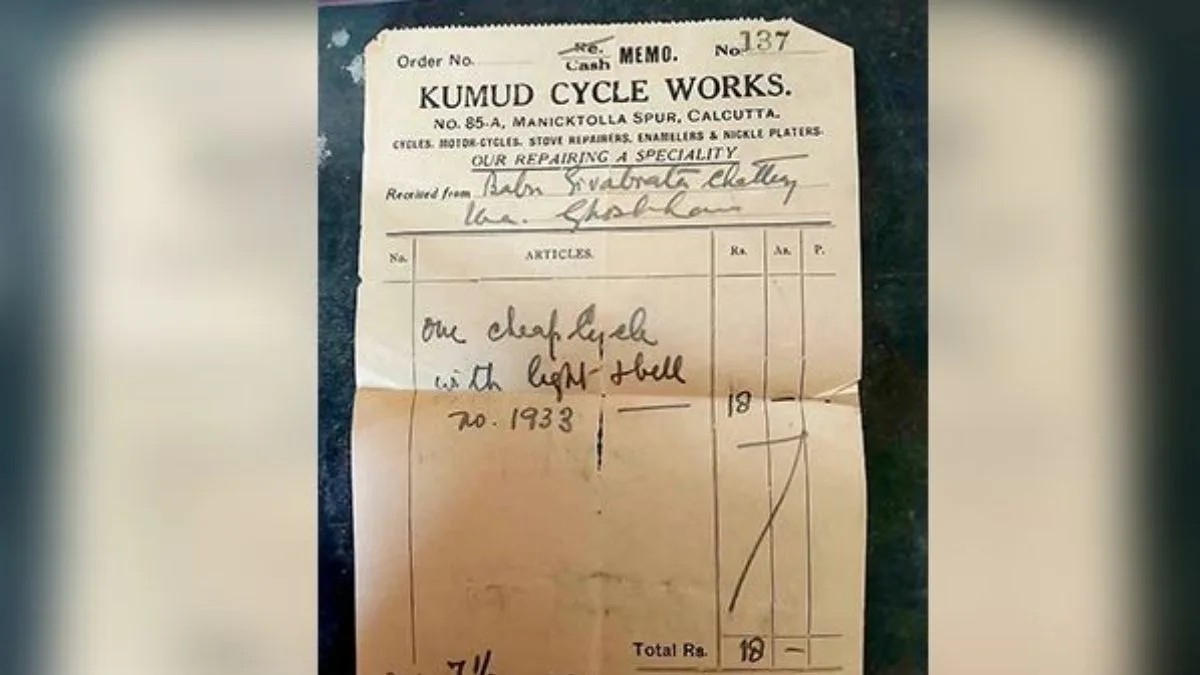 Order No. Re. Cash MEMO. No. 137
KUMUD CYCLE WORKS.
No. 85-A, MANICKTOLLA SPUR, CALCUTTA.
CYCLES, MOTOR-CYCLES, STOVE REPAIRERS, ENAMELERS & NICKLE PLATERS.
OUR REPAIRING A SPECIALITY
Received from Babu Sivabrata
No. ARTICLES. Rs. As. P.
one cheap Cycle
with light & bell
no. 1933 — 18 —
Total Rs. 18 —